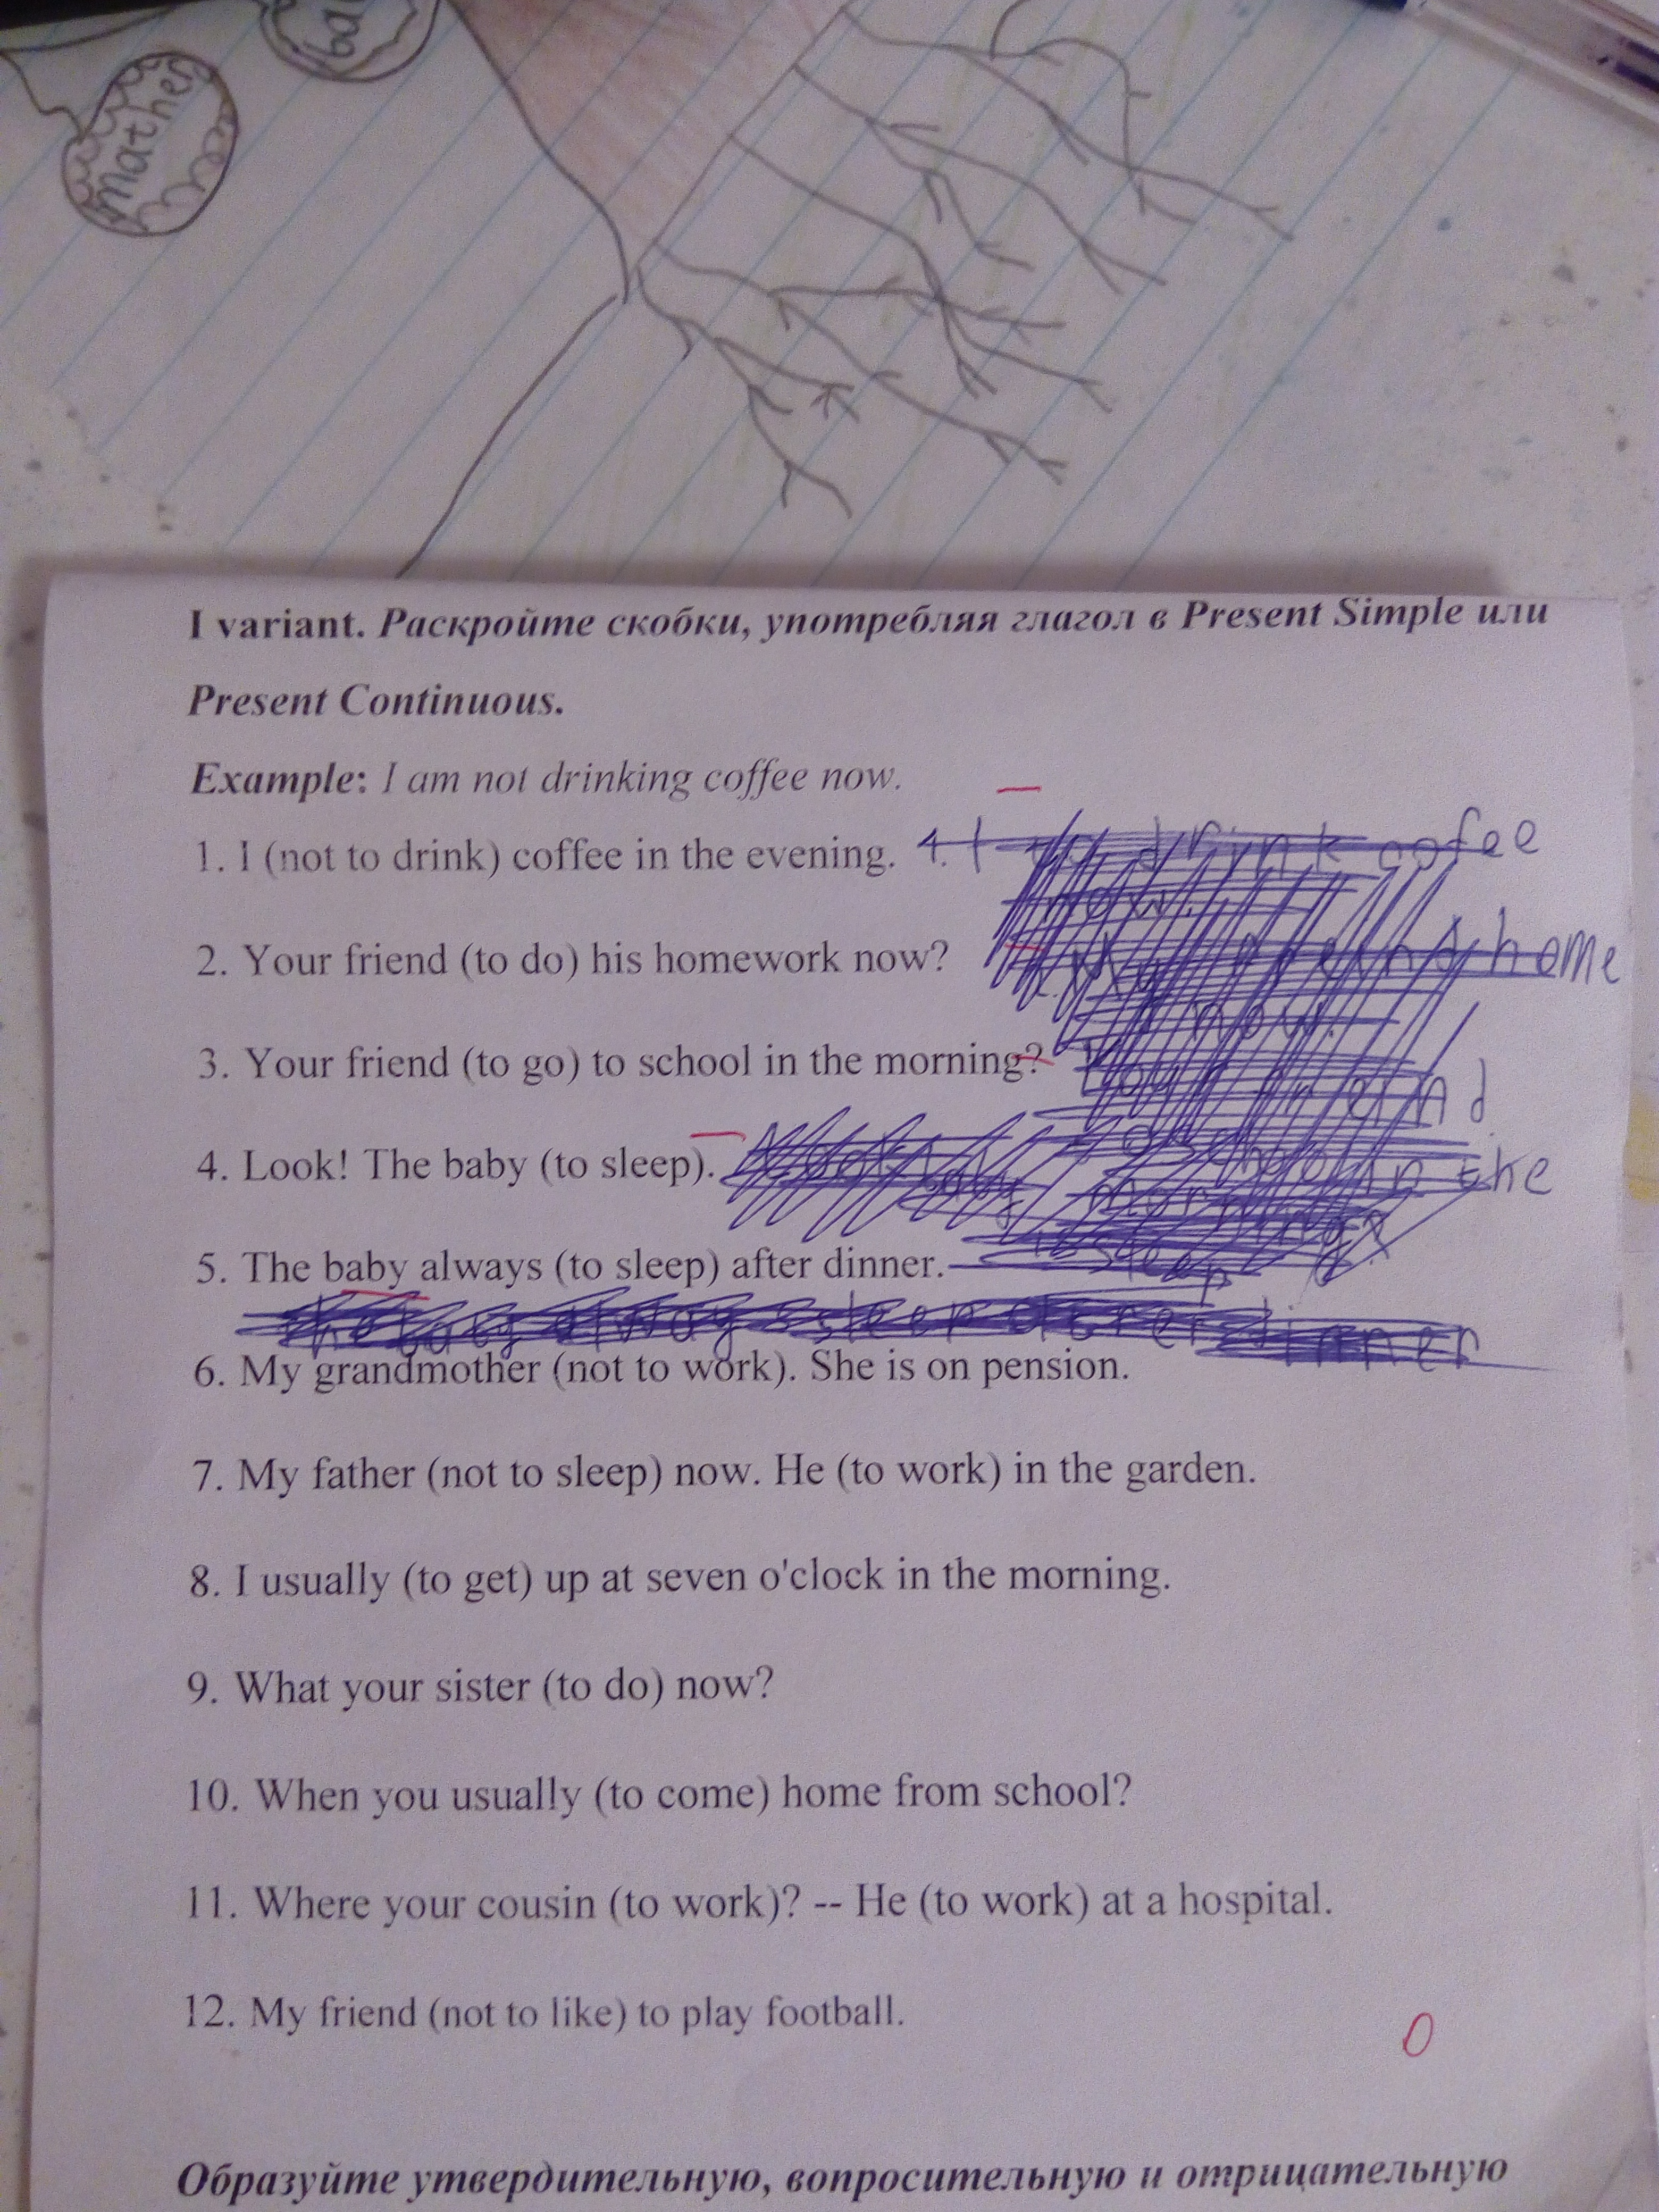 mather
ba
I variant. Раскройте скобки, употребляя глагол в Present Simple или
Present Continuous.
Example: I am not drinking coffee now.
1. I (not to drink) coffee in the evening. 1. I drink cofee
now.
2. Your friend (to do) his homework now? home
now.
3. Your friend (to go) to school in the morning?
4. Look! The baby (to sleep). in the
5. The baby always (to sleep) after dinner. sleep
always sleep dinner
6. My grandmother (not to work). She is on pension.
7. My father (not to sleep) now. He (to work) in the garden.
8. I usually (to get) up at seven o'clock in the morning.
9. What your sister (to do) now?
10. When you usually (to come) home from school?
11. Where your cousin (to work)? -- He (to work) at a hospital.
12. My friend (not to like) to play football.
0
Образуйте утвердительную, вопросительную и отрицательную